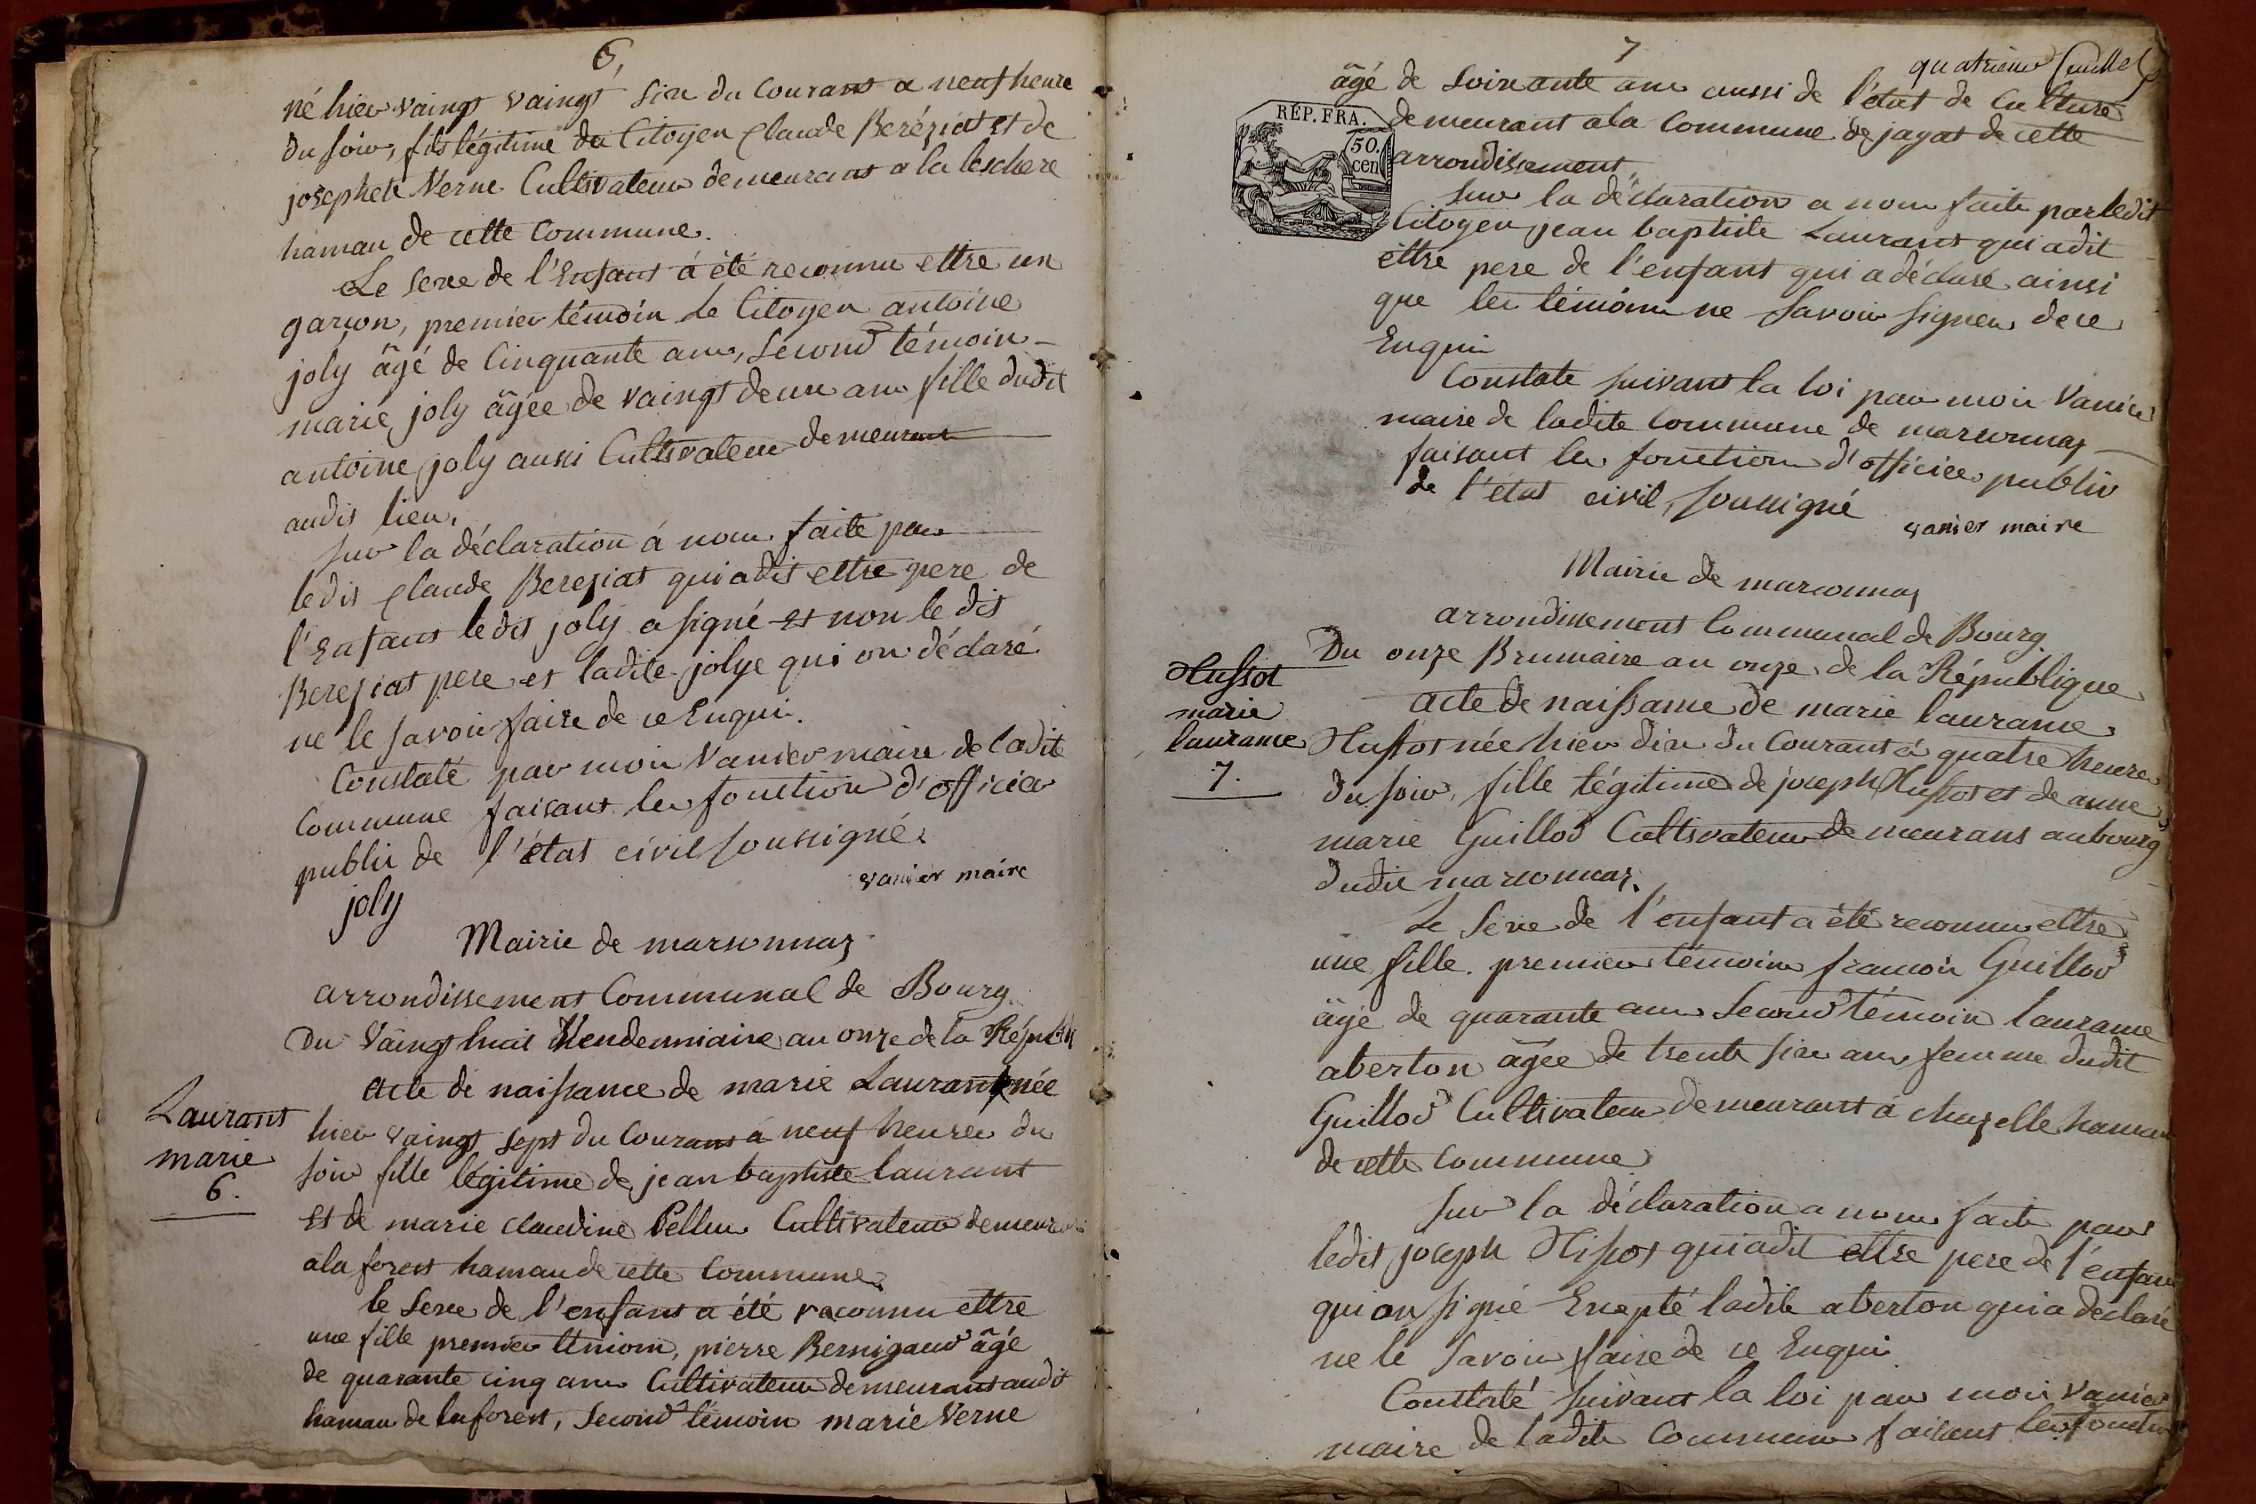 6,
né hier vaingt vaingt sixe du Courant a neuf heure
du soir, fils légitime du Citoyen Claude Bereziat et de
josephete Verne Cultivateur demeurant a la leschere
hamau de cette Commune.
Le sexe de l'Enfant à été reconnu ettre un
garçon, premier témoin le Citoyen antoine
joly âgé de Cinquante ans, second témoin
marie joly âgée de vaingt deux ans fille dudit
antoine joly aussi Cultivateur demeurant
audit lieu.
sur la déclaration à nous faite par
ledit Claude Bereziat qui a dit ettre pere de
l'Enfant ledit joly a signé et non le dit
Bereziat pere et ladite jolye qui on déclaré
ne le savoir faire de ce Enquis.
Constaté par moi Vanier maire de ladite
Commune faisant les fonction d'officier
public de l'état civil soussigné.
joly
vanier maire
Mairie de marsonnaz
arrondissement Communal de Bourg
Du Vaingt huit Vendemiaire an onze de la Répub
acte de naissance de marie Laurant née
Laurant
marie
6.
hier vaingt sept du Courant à neuf heures du
soir fille légitime de jean baptiste laurant
et de marie claudine Pellux Cultivateur demeurant
a la forest hamau de cette Commune.
le sexe de l'enfant a été reconnu ettre
une fille premier temoin, pierre Bernigaud âgé
de quarante cinq ans Cultivateur demeurant audit
hamau de la forest, second témoin marie Verne
7
quatrieme feuillet
âgé de soixante ans aussi de l'état de Culture
demeurant a la Commune de jayat de cette
arrondissement.
RÉP. FRA.
50.
cen
sur la déclaration a nous faite par ledit
Citoyen jean baptiste Laurant qui a dit
ettre pere de l'enfant qui a déclaré ainsi
que les témoin ne savoir signer de ce
Enquis
Constaté suivant la loi par moi Vanier
maire de ladite Commune de marsonnaz
faisant les fonction d'officier public
de l'etat civil, soussigné
vanier maire
Mairie de marsonnaz
arrondissement Communal de Bourg.
Du onze Brumaire an onze de la République
acte de naissance de marie laurance
Hussot
marie
laurance
7.
Hussot née hier dix du Courant à quatre heures
du soir, fille légitime de joseph Hussot et de anne
marie Guillod Cultivateur demeurant au bourg
dudit marsonnaz.
Le sexe de l'enfant a été reconnu ettre
une fille. premier témoin francois Guillod
âgé de quarante ans second témoin laurance
aberton âgée de trente sixe ans femme dudit
Guillod Cultivateur demeurant à chazelle hamau
de cette Commune
sur la déclaration a nous faite par
ledit joseph Hussot qui a dit ettre pere de l'enfant
qui on signé Excepté ladite aberton qui a declaré
ne le savoir faire de ce Enquis
Constaté suivant la loi par moi vanier
maire de ladite Commune faisant les fonction